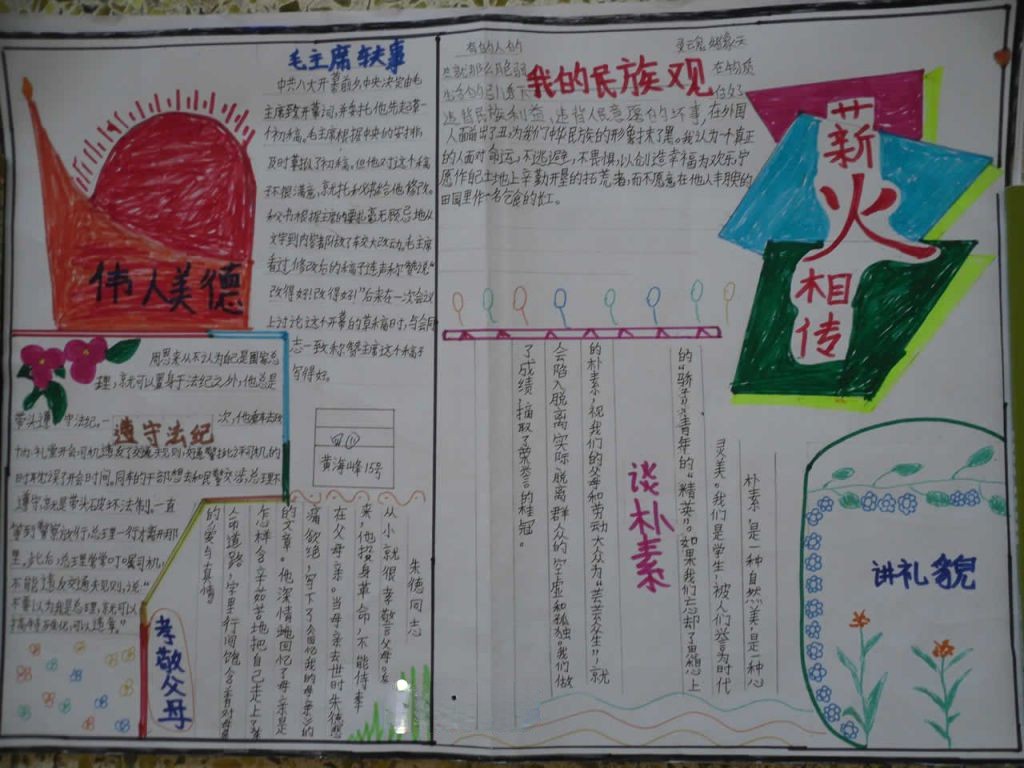 毛主席轶事
中共八大开幕前夕,中央决定由毛
主席致开幕词,并委托他先起草一
个初稿。毛主席根据中央的安排,
及时草拟了初稿。但他对这个稿
子不很满意,就托秘书给他修改。
秘书根据主席的草起毫无顾忌地从
文字到内容都做了较大改动。毛主席
看过修改后的稿子连声称赞说“
改得好!改得好!”后来在一次会议
上讨论这个开幕的草稿时,与会同
志一致称赞主席这个稿子
写得好。
伟人美德
周恩来从不认为自己是国家总
理,就可以置身于法纪之外,他总是
带头遵守法纪。一次,他乘车去
遵守法纪
礼堂开会司机违反了交通规则
时耽误了开会时间。同来的干部想去和民警交涉,总理不
遵守,就是带头破坏法制。一直
等到警察放行,总理一行才离开那
里。此后,总理常常叮嘱司机
不能违反交通规则,说:“
不要认为我是总理,就可以
四(1)
黄海峰15号
孝敬父母
朱德同志
从小就很孝敬父母。后
来,他投身革命,不能侍奉
在父母亲。当母亲去世时朱德悲
痛欲绝,写下了《回忆我的母亲》
的文章。他深情地回忆了母亲是
怎样含辛茹苦地把自己走上革
命道路,字里行间饱含着对母
的爱与真情
我的民族观
有的人的
灵魂
违背民族利益、违背人民意愿的坏事,在外国
人面前出了丑,为我们中华民族的形象抹了黑。我认为一个真正
的人面对命运,不逃避,不畏惧,以创造幸福为欢乐,宁
愿作贫土地上辛勤开垦的拓荒者,而不愿意在他人丰腴的
田园里作一名乞食的奴。
薪火相传
谈朴素
朴素,是一种自然美,是一种心
灵美。我们是学生,被人们誉为时代
的“骄子”,青年的“精英”。如果我们忘却了思想上
的朴素,视我们的父母和劳动大众为“芸芸众生”,就
会陷入脱离实际、脱离群众的空虚和孤独。我们做
了成绩,摘取了荣誉的桂冠。
讲礼貌